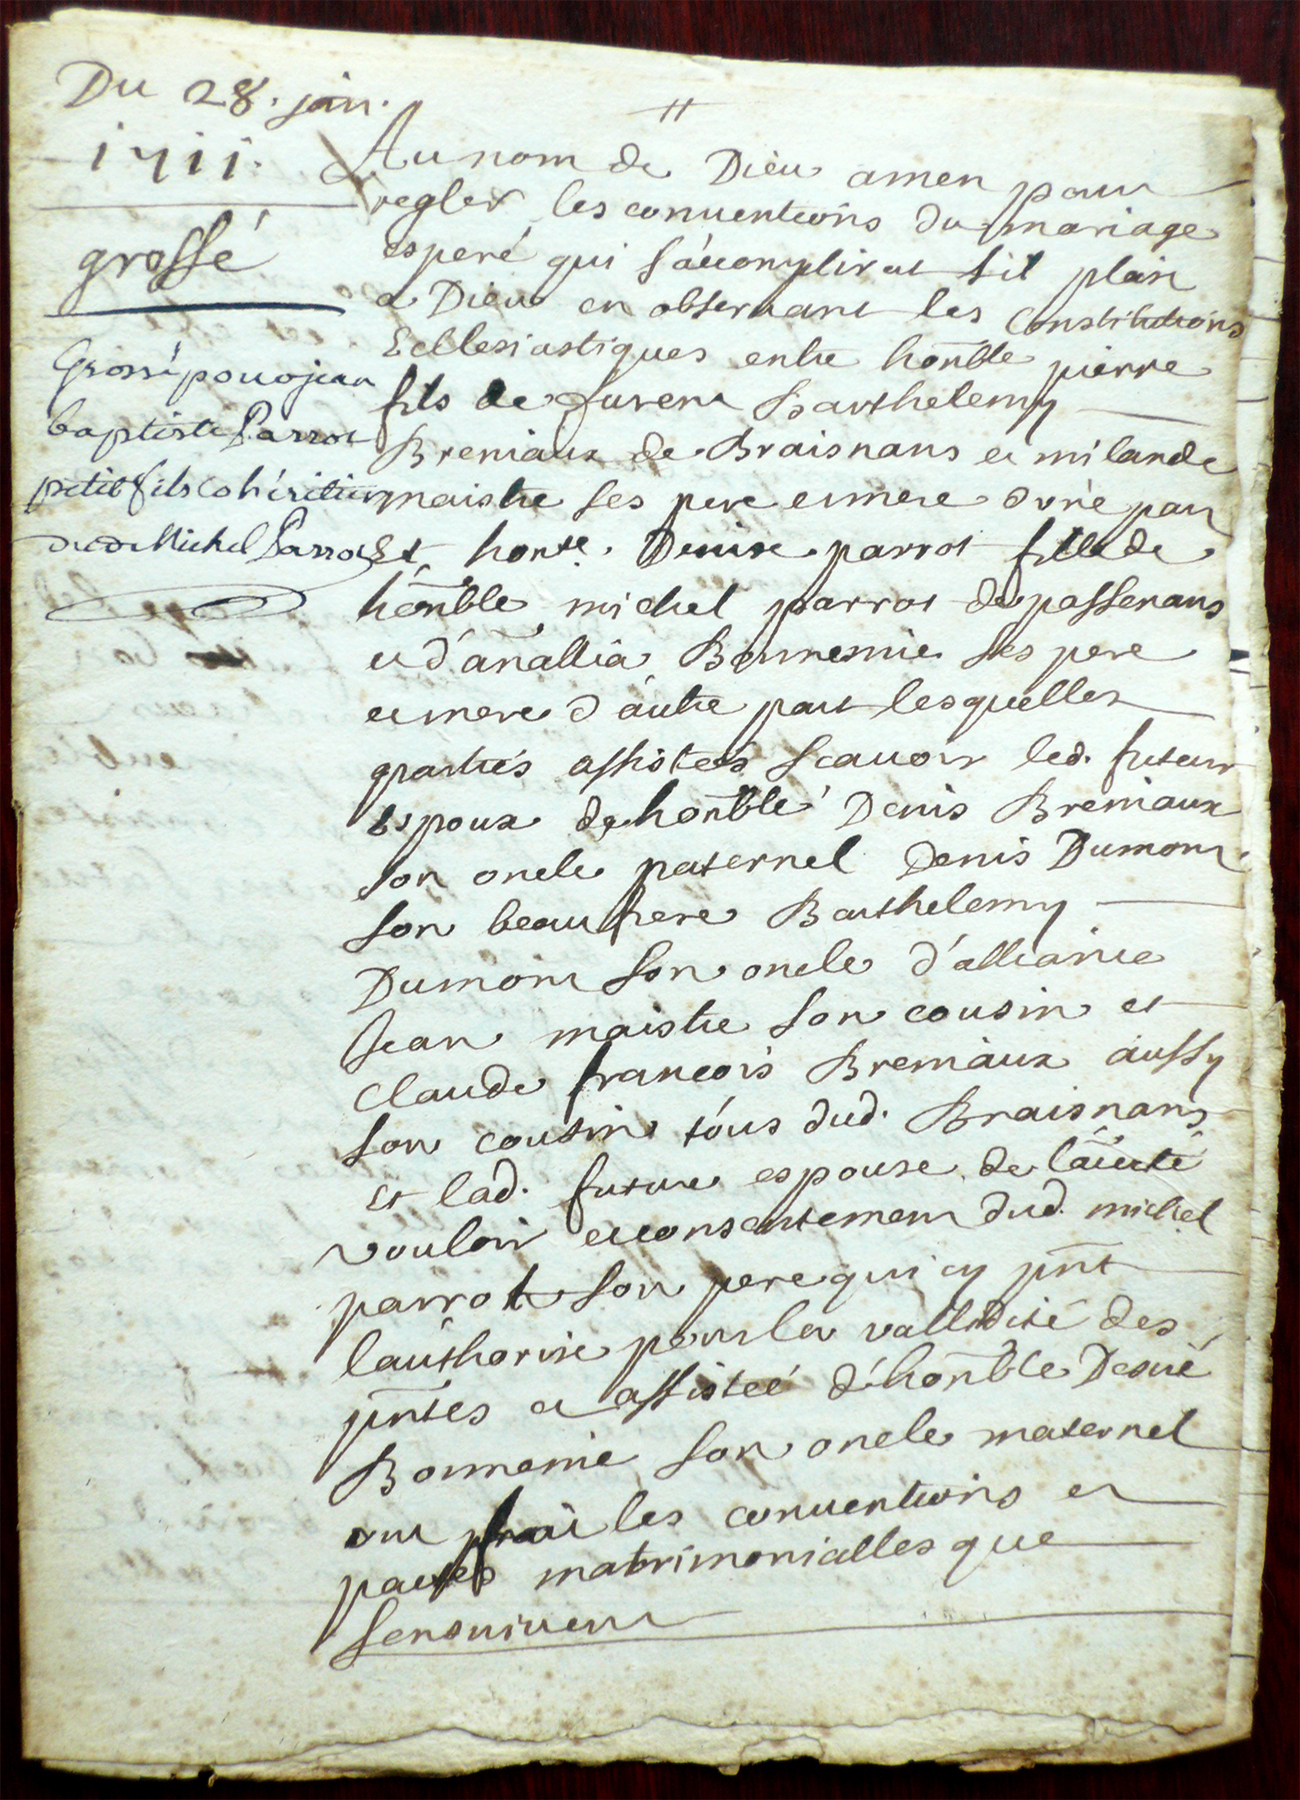 Du 28. jan.
1711.
grossé
Grossé pour jean
baptiste Parrot
petit fils cohéritier
dud. Michel Parrot
Au nom de Dieu amen pour
regler les conuentions du mariage
esperé qui s'accomplirat s'il plait
a Dieu en obseruant les Constitutions
Ecclesiastiques entre honble pierre
fils de furent Barthelemy
Breniaux de Braisnans et milande
maistre ses pere et mere d'vne part
Et honte. Denise parrot fille de
honble michel parrot de passenans
et d'anallia Bonnemie ses pere
et mere d'autre part lesquelles
parties assistées scauoir led. futeur
espoux de honble Denis Breniaux
son oncle paternel Denis Dumont
son beau frere Barthelemy
Dumont son oncle d'alliance
Jean maistre son cousin et
claude francois Breniaux aussy
son cousin tous dud. Braisnans
Et lad. future espouse de l'aucté
vouloir et consentement dud. michel
parrot son pere qui cy pnt
l'authorise pour la vallidité des
pntes et assistée d'honble Desiré
Bonnemie son oncle maternel
ont fait les conuentions et
pactes matrimonialles que
sensuiuent